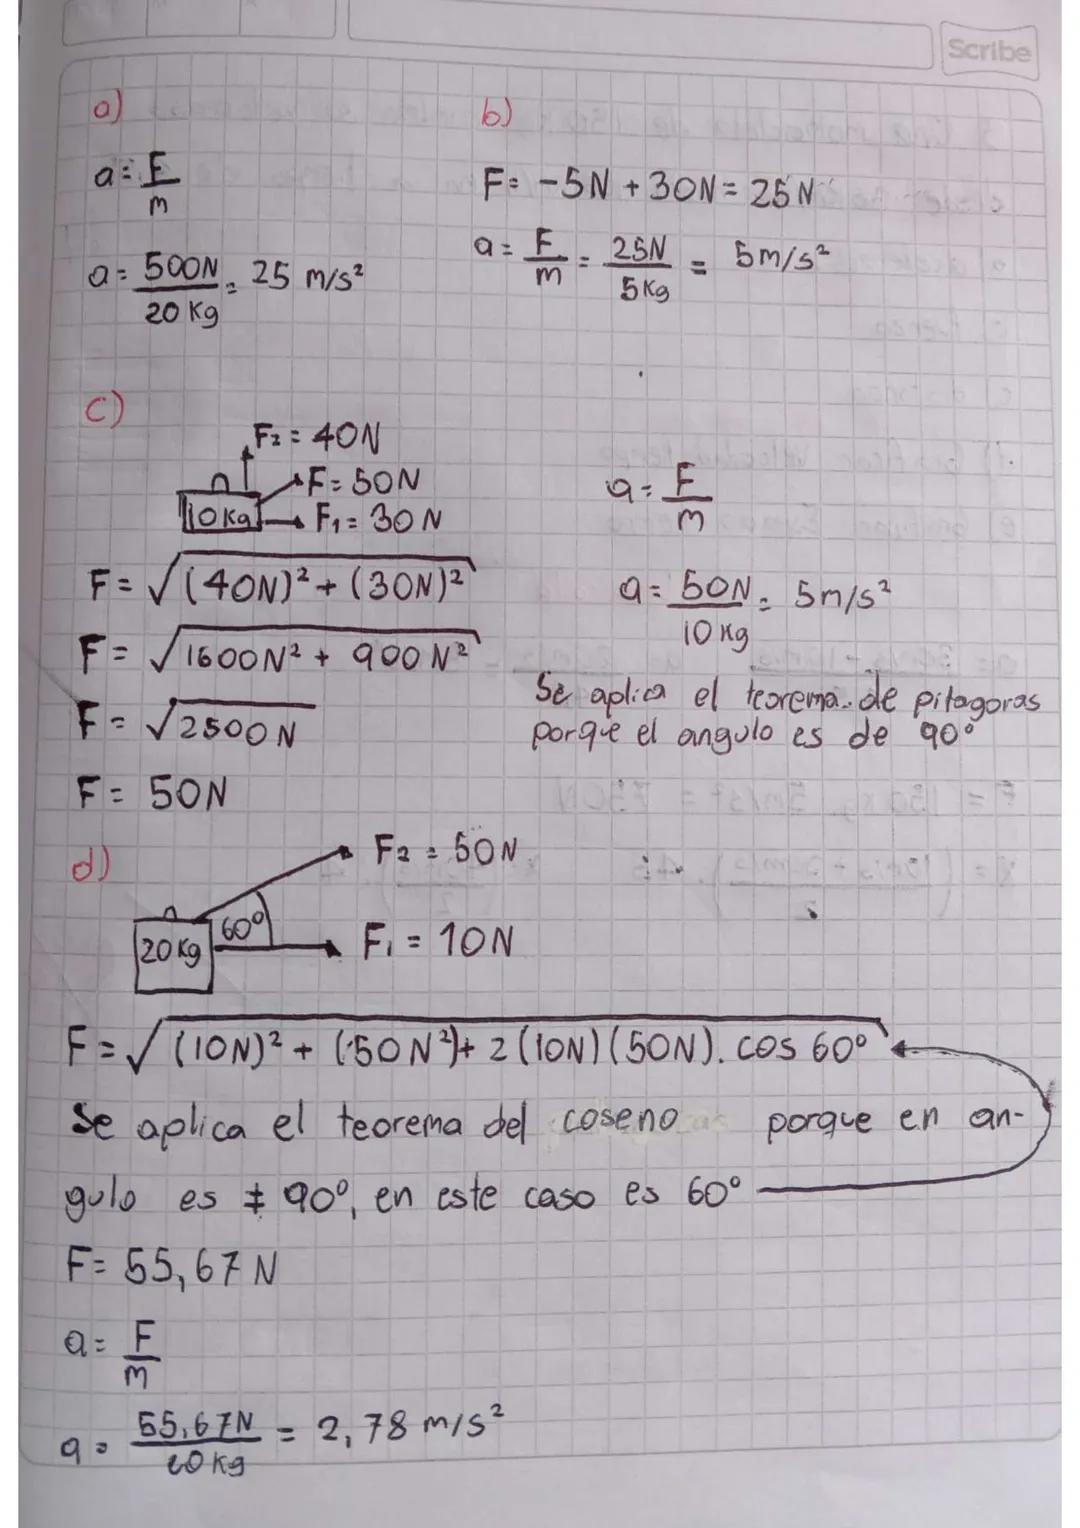 Scribe
a)
a = F/m
a = 500N/20 Kg = 25 m/s²
b)
F = -5N + 30N = 25N
a = F/m = 25N/5Kg = 5m/s²
c)
F₂ = 40N
F = 50N
10Kg F₁ = 30N
F = √(40N)² + (30N)²
F = √1600N² + 900N²
F = √2500N
F = 50N
a = F/m
a = 50N/10 Kg = 5m/s²
Se aplica el teorema de pitagoras
porque el angulo es de 90°
d)
F₂ = 50N
20Kg 60° F₁ = 10N
F = √(10N)² + (50N²)+ 2(10N)(50N). cos 60°
Se aplica el teorema del coseno porque en an-
gulo es ≠ 90°, en este caso es 60°
F = 55,67 N
a = F/m
a = 55,67N/20Kg = 2,78 m/s²